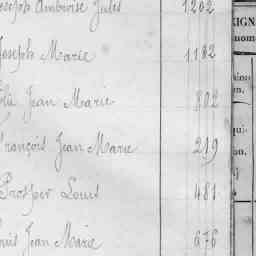 Joseph Ambroise Jules 1202
Joseph Marie 1182
Jean Marie 802
François Jean Marie 219
Prosper Louis 481
Jean Marie 676